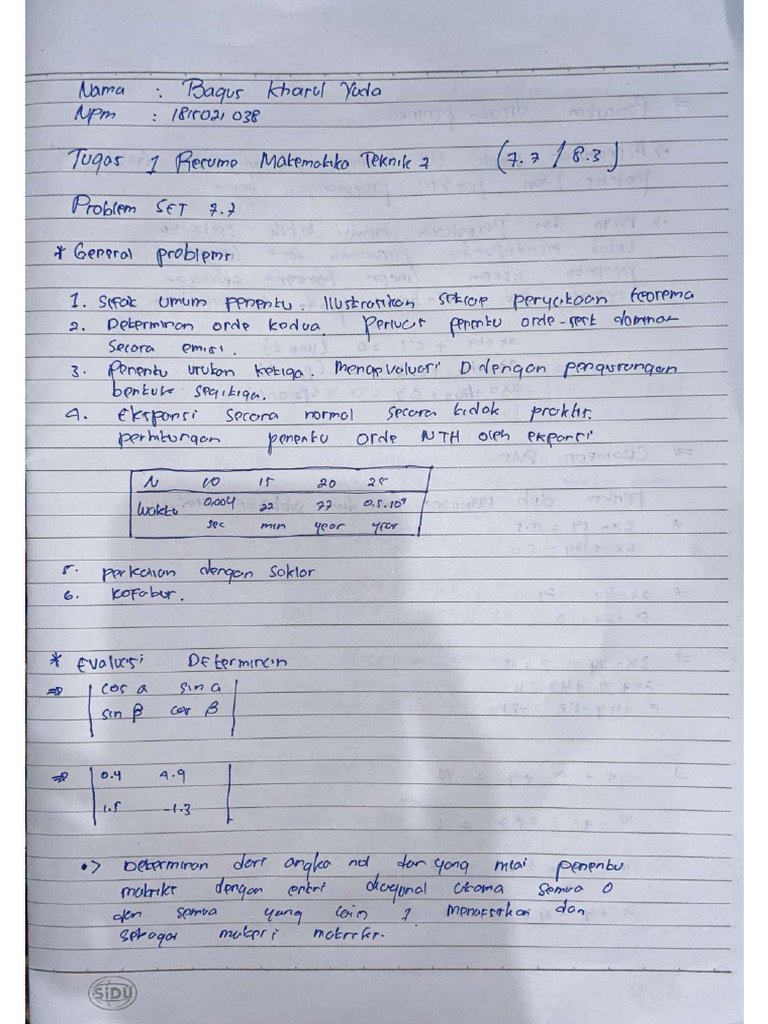 Nama : Bagus Kharul Yuda
Npm : 1815021038
Tugas 1 Resume Matematika Teknik 2 (7.7 / 8.3)
Problem SET 7.7
* General problems
1. Sifat umum penentu. Illustrasikan setiap penyataan teorema
2. Determinan orde kedua. Perluas penentu orde-
secara emisi.
3. Penentu urukan ketiga. Mengevaluasi D dengan pengurangan
bentuk segitiga.
4. Ekspansi secara normal secara tidak praktis.
perhitungan penentu orde NTH oleh expansi
N 10 15 20 25
Waktu 0,004 22 77 0.5.10⁹
sec min year year
5. perkalian dengan skalar
6. kofabur.
* Evaluasi Determinan
⇒ cos a sin a
sin β cos β
⇒ 0.4 4.9
1.5 -1.3
•> Determinan dari angka nol dan yang nilai penentu
matriks dengan entri diagonal utama semua 0
dan semua yang lain 1 dan
sebagai materi
SiDU